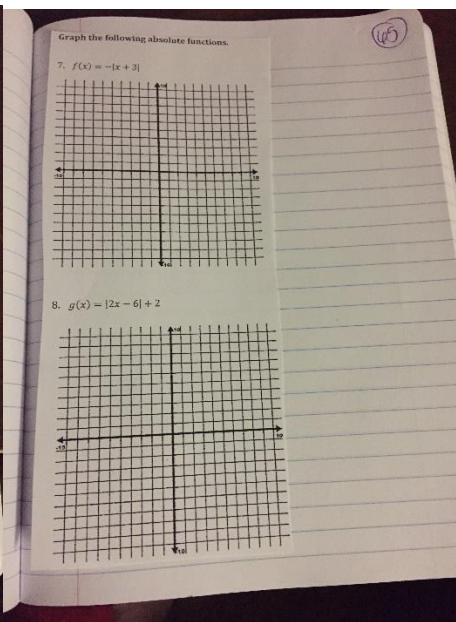 Graph the following absolute functions.
65
7. f(x) = −|x + 3|
10
-10
10
8. g(x) = |2x − 6| + 2
10
-10
10
-10